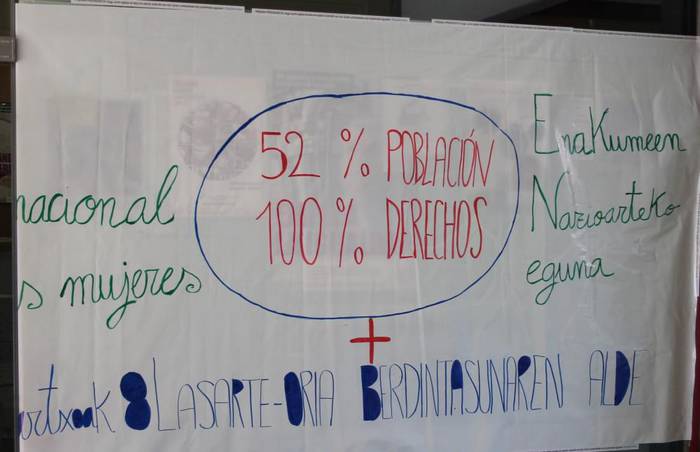 nacional
s mujeres
52 % POBLACIÓN
100 % DERECHOS
+
EmaKumeen
NazioarteKo
eguna
artxoak 8 LASARTE-ORIA BERDINTASUNAREN ALDE